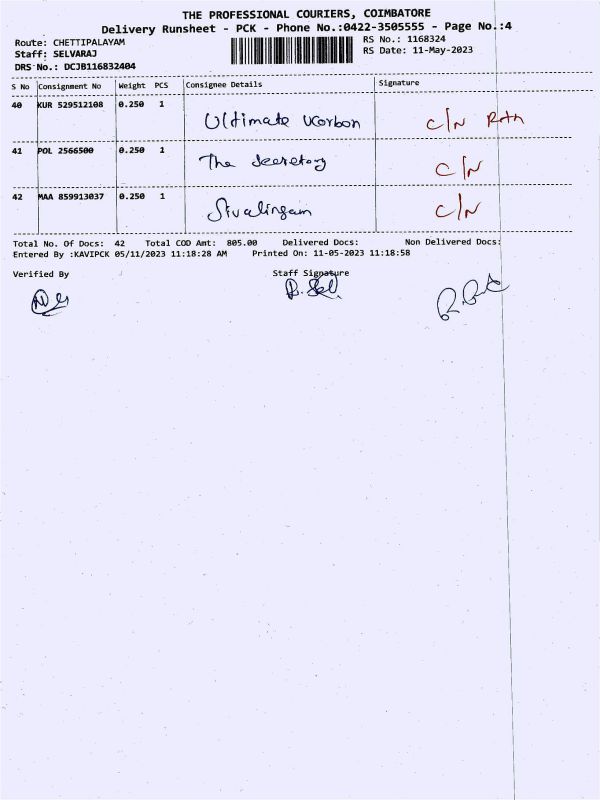 THE PROFESSIONAL COURIERS, COIMBATORE
Delivery Runsheet - PCK - Phone No.:0422-3505555 - Page No.:4
Route: CHETTIPALAYAM
RS No.: 1168324
Staff: SELVARAJ
RS Date: 11-May-2023
DRS No.: DCJB116832404
S No Consignment No Weight PCS Consignee Details Signature
40 KUR 529512108 0.250 1 Ultimate c/N Rtn
41 POL 2566500 0.250 1 The Secretary c/N
42 MAA 859913037 0.250 1 Sivalingam c/N
Total No. Of Docs: 42 Total COD Amt: 805.00 Delivered Docs: Non Delivered Docs:
Entered By :KAVIPCK 05/11/2023 11:18:28 AM Printed On: 11-05-2023 11:18:58
Verified By Staff Signature